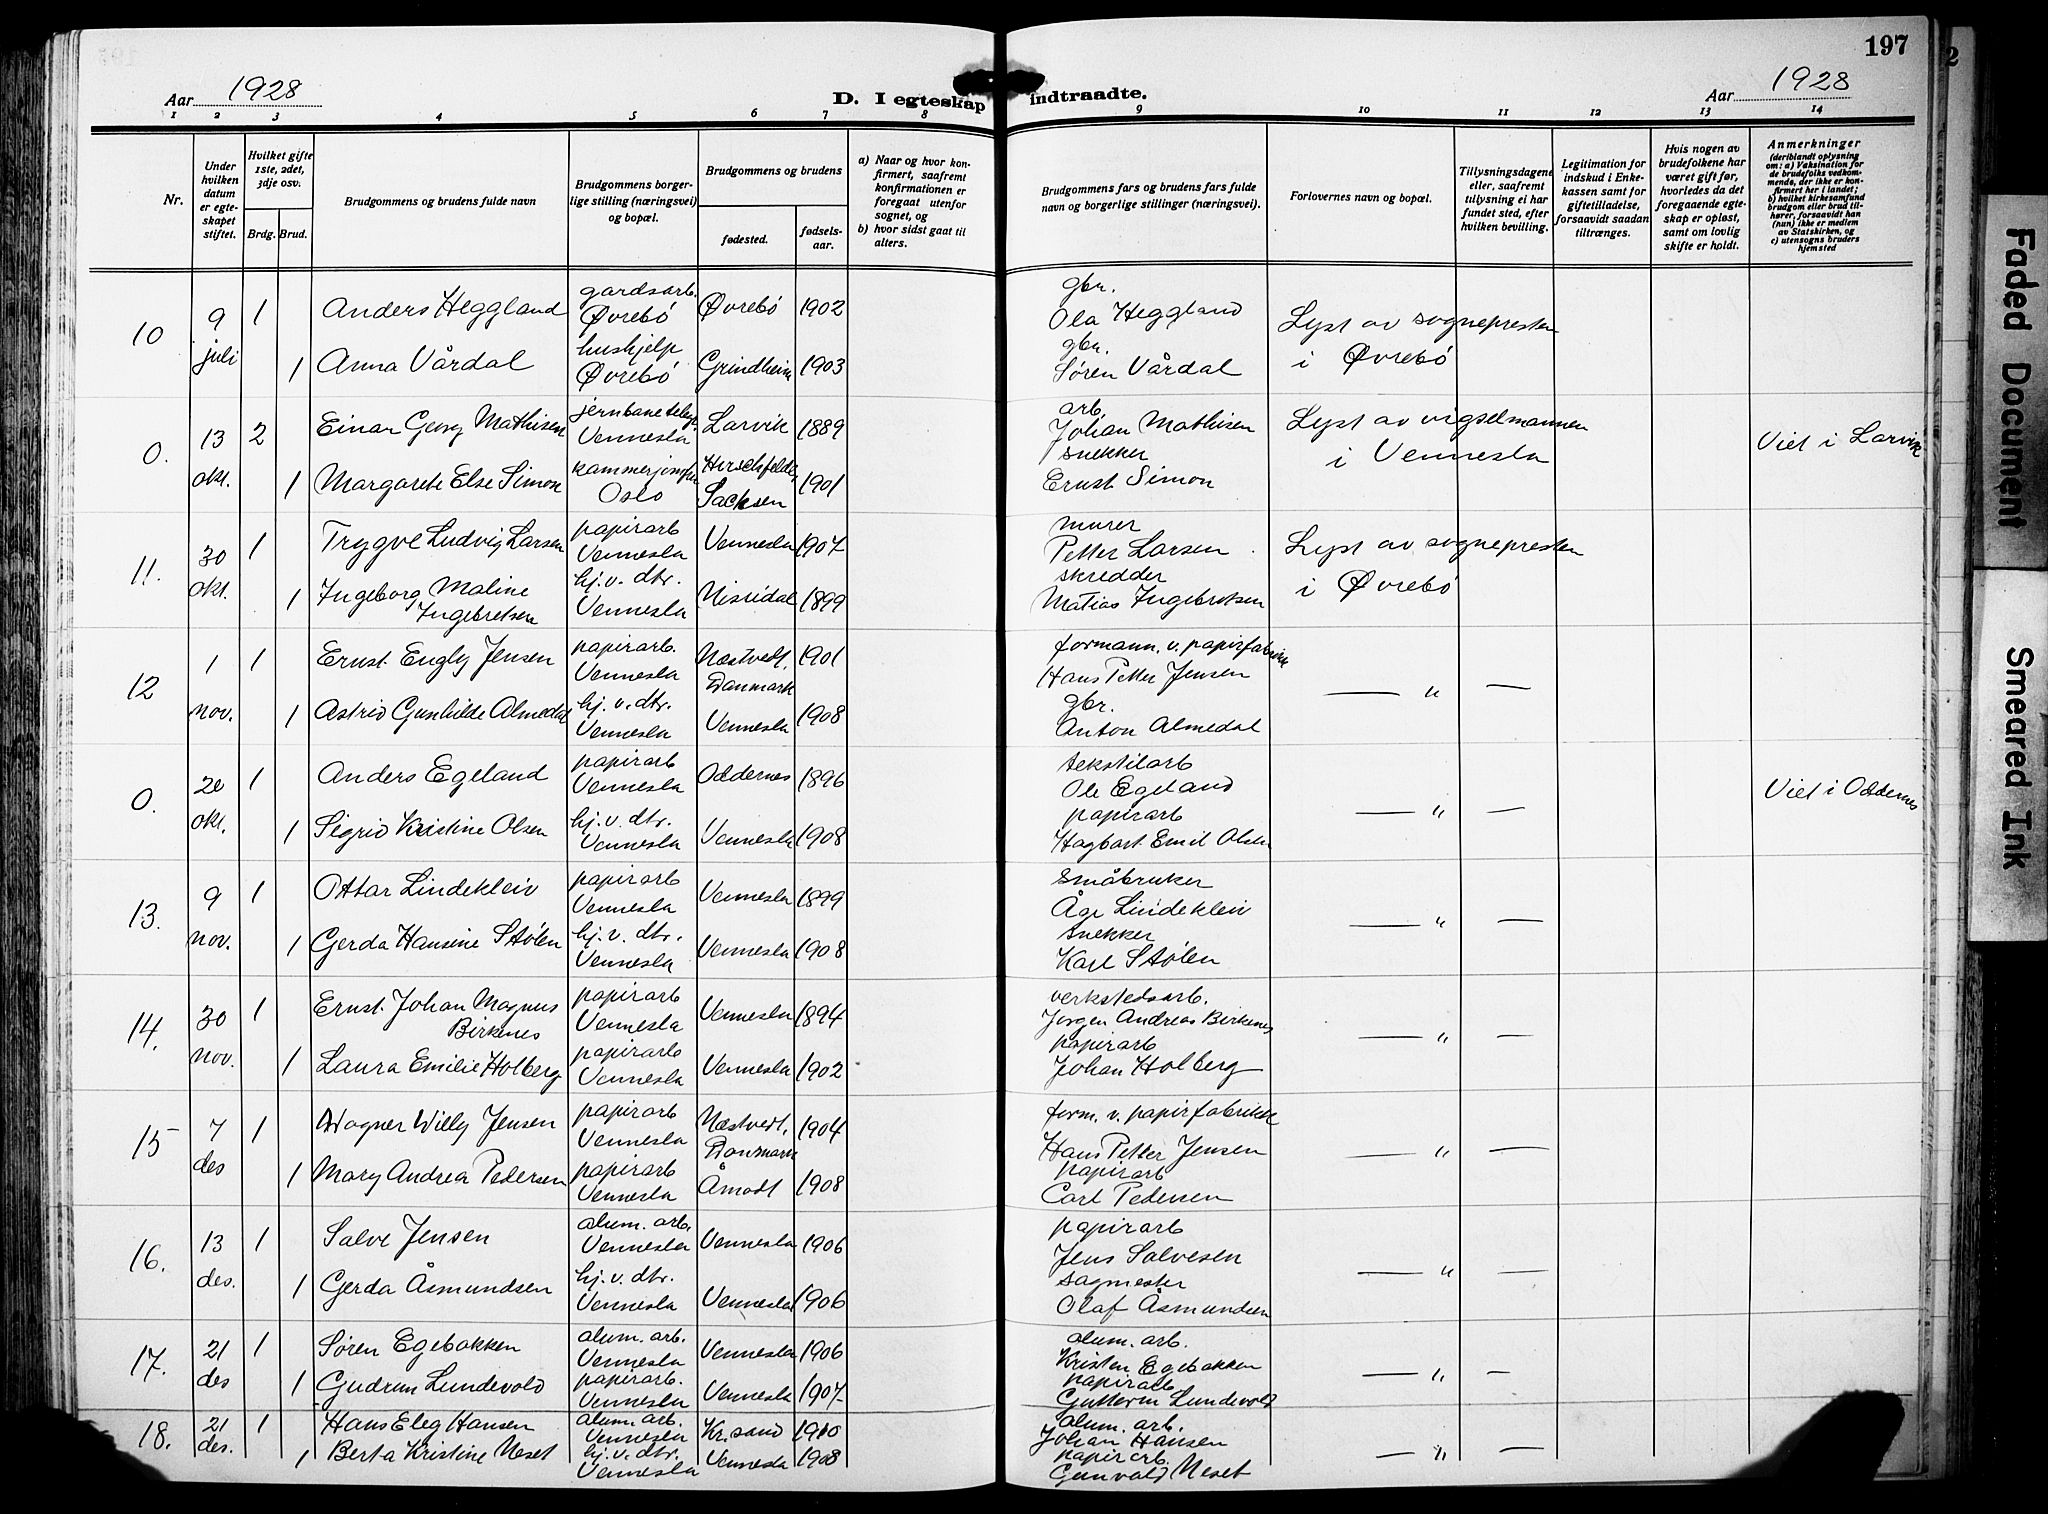 197
Aar 1928
D. I egteskap indtraadte.
Aar 1928
1 2 3 4 5 6 7 8 9 10 11 12 13 14
Nr.
Under hvilken datum er egteskapet stiftet.
Hvilket gifte 1ste, 2det, 3dje osv.
Brdg. Brud.
Brudgommens og brudens fulde navn
Brudgommens borgerlige stilling (næringsvei) og bopæl.
Brudgommens og brudens
fødested.
fødselsaar.
a) Naar og hvor konfirmert, saafremt konfirmationen er foregaat utenfor sognet, og
b) hvor sidst gaat til alters.
Brudgommens fars og brudens fars fulde navn og borgerlige stillinger (næringsvei).
Forlovernes navn og bopæl.
Tillysningsdagene eller, saafremt tillysning ei har fundet sted, efter hvilken bevilling.
Legitimation for indskud i Enkekassen samt for giftetilladelse, forsaavidt saadan tiltrænges.
Hvis nogen av brudefolkene har været gift før, hvorledes da det foregaaende egteskap er opløst, samt om lovlig skifte er holdt.
Anmerkninger (deriblandt oplysning om: a) Vaksination for de brudefolks vedkommende, der ikke er konfirmert her i landet; b) hvilket kirkesamfund brudgom eller brud tilhører, forsaavidt han (hun) ikke er medlem av Statskirken, og c) utensogns bruders hjemsted
10 9 juli 1 Anders Heggland gardsarb. Øvrebø Øvrebø 1902 gbr. Ola Heggland Lyst av sognepresten i Øvrebø
1 Anna Vårdal hushjelp Øvrebø Grindheim 1903 gbr. Søren Vårdal
0. 13 okt. 2 Einar Georg Mathisen Vennesla Larvik 1889 arb. Johan Mathisen Lyst av vigselmannen i Vennesla Viet i Larvik
1 Margarete Else Simon kammerjomfru Oslo Hirschfelde, Sachsen 1901 snekker Ernst Simon
11. 30 okt. 1 Trygve Ludvig Larsen papirarb Vennesla Vennesla 1907 murer Petter Larsen Lyst av sognepresten i Øvrebø
1 Ingeborg Maline Ingebretsen hj.v. dtr. Vennesla Nissedal 1899 skredder Matias Ingebretsen
12 1 nov. 1 Ernst Engly Jensen papirarb. Vennesla Næstvedt, Danmark 1901 formann. v. papirfabrikk Hans Petter Jensen — " —
1 Astrid Gunhilde Almedal hj. v. dtr. Vennesla Vennesla 1908 gbr. Anton Almedal
0. 20 okt. 1 Anders Egeland papirarb Vennesla Oddernes 1896 tekstilarb Ole Egeland — " — Viet i Oddernes
1 Sigrid Kristine Olsen hj. v. dtr. Vennesla Vennesla 1908 papirarb Hagbart Emil Olsen
13. 9 nov. 1 Ottar Lindekleiv papirarb Vennesla Vennesla 1899 småbruker Åge Lindekleiv — " —
1 Gerda Hansine Stølen hj. v. dtr. Vennesla Vennesla 1908 snekker Karl Stølen
14. 30 nov. 1 Ernst Johan Magnus Birkenes papirarb Vennesla Vennesla 1894 verkstedsarb. Jørgen Andreas Birkenes — " —
1 Laura Emilie Holberg papirarb Vennesla Vennesla 1902 papirarb Johan Holberg
15 7 des 1 Wagner Willy Jensen papirarb Vennesla Næstvedt, Danmark 1904 form. v. papirfabrikk Hans Petter Jensen — " —
1 Mary Andrea Pedersen papirarb Vennesla Åmodt 1908 papirarb Carl Pedersen
16. 13 des. 1 Salve Jensen alum. arb. Vennesla Vennesla 1906 papirarb Jens Salvesen — " —
1 Gerda Åsmundsen hj. v. dtr. Vennesla Vennesla 1906 sagmester Olaf Åsmundsen
17. 21 des 1 Søren Egebakken alum. arb. Vennesla Vennesla 1906 alum. arb. Kristen Egebakken — " —
1 Gudrun Lundevold papirarb. Vennesla Vennesla 1907 papirarb Guttorm Lundevold
18. 21 des. 1 Hans Eleg Hansen alum. arb. Vennesla Kr.sand 1900 alum. arb. Johan Hansen — " —
1 Berta Kristine Neset hj. v. dtr. Vennesla Vennesla 1908 papirarb. Gunvald Neset
Faded Document
Smeared Ink
2